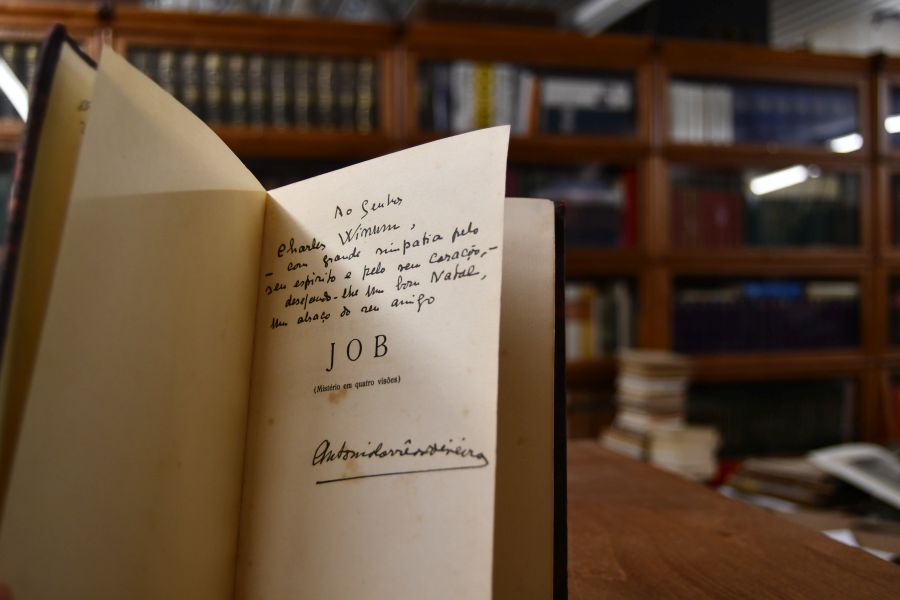 Ao Senhor
Charles Winum,
– com grande simpatia pelo
seu espírito e pelo seu coração, –
desejando-lhe um bom Natal,
um abraço do seu amigo
JOB
(Mistério em quatro visões)
António Corrêa d'Oliveira